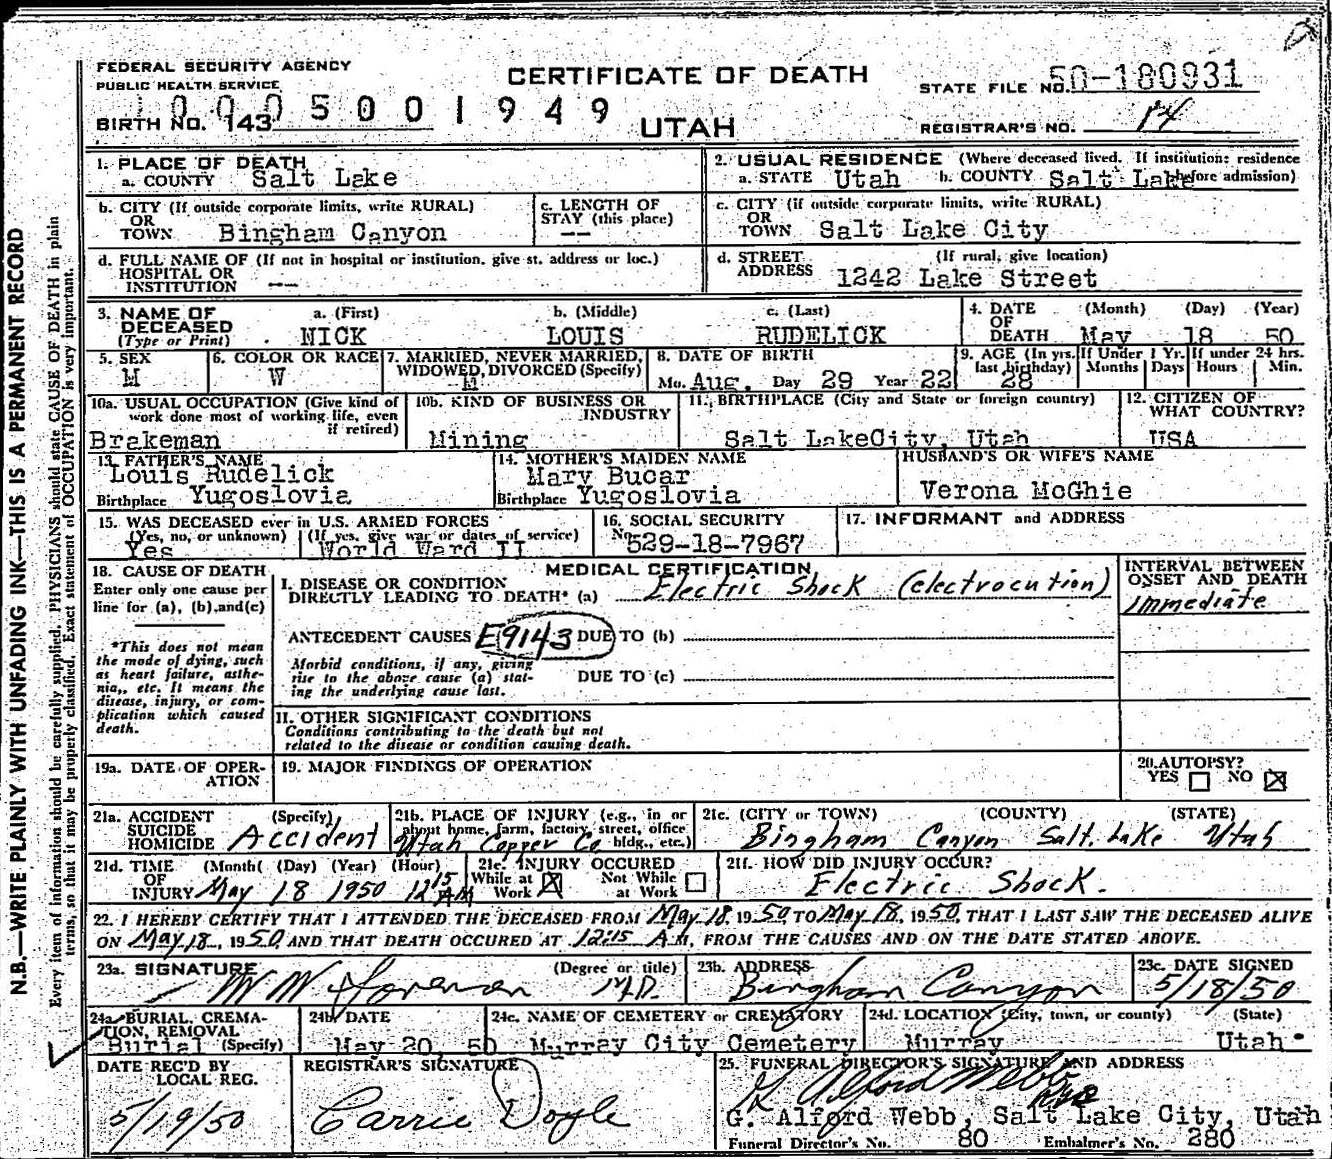 FEDERAL SECURITY AGENCY
PUBLIC HEALTH SERVICE
CERTIFICATE OF DEATH
STATE FILE NO. 50-180931
BIRTH NO. 143
5 0 0 1 9 4 9
UTAH
REGISTRAR'S NO. 14
N.B.—WRITE PLAINLY WITH UNFADING INK—THIS IS A PERMANENT RECORD
Every item of information should be carefully supplied. PHYSICIANS should state CAUSE OF DEATH in plain
terms, so that it may be properly classified. Exact statement of OCCUPATION is very important.
1. PLACE OF DEATH
a. COUNTY Salt Lake
2. USUAL RESIDENCE (Where deceased lived. If institution: residence
a. STATE Utah b. COUNTY Salt Lake before admission)
b. CITY (If outside corporate limits, write RURAL)
OR
TOWN Bingham Canyon
c. LENGTH OF
STAY (this place)
--
c. CITY (if outside corporate limits, write RURAL)
OR
TOWN Salt Lake City
d. FULL NAME OF (If not in hospital or institution, give st. address or loc.)
HOSPITAL OR
INSTITUTION --
d. STREET (If rural, give location)
ADDRESS 1242 Lake Street
3. NAME OF DECEASED (Type or Print)
a. (First) b. (Middle) c. (Last)
NICK LOUIS RUDELICK
4. DATE OF DEATH (Month) (Day) (Year)
May 18 50
5. SEX
M
6. COLOR OR RACE
W
7. MARRIED, NEVER MARRIED,
WIDOWED, DIVORCED (Specify)
M
8. DATE OF BIRTH
Mo. Aug. Day 29 Year 22
9. AGE (In yrs. last birthday)
28
If Under 1 Yr. Months Days
If under 24 hrs. Hours Min.
10a. USUAL OCCUPATION (Give kind of
work done most of working life, even
if retired)
Brakeman
10b. KIND OF BUSINESS OR
INDUSTRY
Mining
11. BIRTHPLACE (City and State or foreign country)
Salt LakeCity, Utah
12. CITIZEN OF
WHAT COUNTRY?
USA
13. FATHER'S NAME
Louis Rudelick
Birthplace Yugoslovia
14. MOTHER'S MAIDEN NAME
Mary Bucar
Birthplace Yugoslovia
HUSBAND'S OR WIFE'S NAME
Verona McGhie
15. WAS DECEASED ever in U.S. ARMED FORCES
(Yes, no, or unknown) (If yes, give war or dates of service)
Yes World Ward II
16. SOCIAL SECURITY
No. 529-18-7967
17. INFORMANT and ADDRESS
18. CAUSE OF DEATH
Enter only one cause per
line for (a), (b), and (c)
*This does not mean
the mode of dying, such
as heart failure, asthe-
nia,, etc. It means the
disease, injury, or com-
plication which caused
death.
MEDICAL CERTIFICATION
I. DISEASE OR CONDITION
DIRECTLY LEADING TO DEATH* (a) Electric Shock (electrocution)
INTERVAL BETWEEN
ONSET AND DEATH
Immediate
ANTECEDENT CAUSES E9143 DUE TO (b)
Morbid conditions, if any, giving
rise to the above cause (a) stat-
ing the underlying cause last.
DUE TO (c)
II. OTHER SIGNIFICANT CONDITIONS
Conditions contributing to the death but not
related to the disease or condition causing death.
19a. DATE OF OPER-
ATION
19. MAJOR FINDINGS OF OPERATION
20. AUTOPSY?
YES ☐ NO ☒
21a. ACCIDENT (Specify)
SUICIDE
HOMICIDE Accident
21b. PLACE OF INJURY (e.g., in or
about home, farm, factory, street, office
bldg., etc.)
Utah Copper Co
21c. (CITY or TOWN) (COUNTY) (STATE)
Bingham Canyon Salt Lake Utah
21d. TIME (Month( (Day) (Year) (Hour)
OF
INJURY May 18 1950 12 15 AM
21e. INJURY OCCURED
While at Work ☒ Not While at Work ☐
21f. HOW DID INJURY OCCUR?
Electric Shock.
22. I HEREBY CERTIFY THAT I ATTENDED THE DECEASED FROM May 18, 1950 TO May 18, 1950, THAT I LAST SAW THE DECEASED ALIVE
ON May 18, 1950, AND THAT DEATH OCCURED AT 12:15 A M, FROM THE CAUSES AND ON THE DATE STATED ABOVE.
23a. SIGNATURE (Degree or title)
M.D.
23b. ADDRESS
Bingham Canyon
23c. DATE SIGNED
5/18/50
24a. BURIAL, CREMA-
TION, REMOVAL
Burial (Specify)
24b. DATE
May 20, 50
24c. NAME OF CEMETERY or CREMATORY
Murray City Cemetery
24d. LOCATION (City, town, or county) (State)
Murray Utah
DATE REC'D BY
LOCAL REG.
5/19/50
REGISTRAR'S SIGNATURE
Carrie Doyle
25. FUNERAL DIRECTOR'S SIGNATURE AND ADDRESS
G. Alford Webb
G. Alford Webb, Salt Lake City, Utah
Funeral Director's No. 80 Embalmer's No. 280